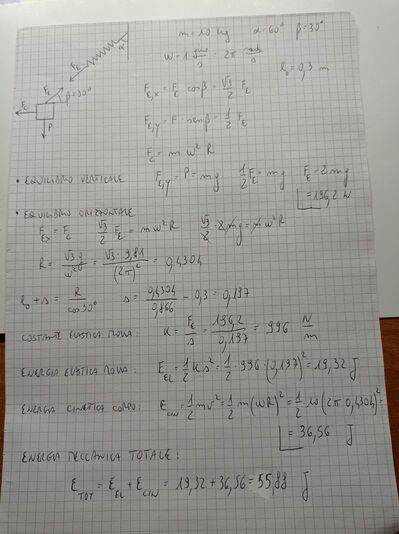 m = 10 kg   α = 60°   β = 30°
α
W = 1 giro/s = 2π rad/s
l₀ = 0,3 m
F_E
F_E
β = 30°
F_c
P
F_E,x = F_E cosβ = √3/2 F_E
F_E,y = F · senβ = 1/2 F_E
F_c = m w² R
• EQUILIBRIO VERTICALE   F_E,y = P = mg   1/2 F_E = mg   F_E = 2mg = 196,2 N
• EQUILIBRIO ORIZZONTALE
F_Ex = F_c   √3/2 F_E = m w² R   √3/2 · 2mg = m w² R
R = √3 g / w² = √3 · 9,81 / (2π)² = 0,4304
l₀ + s = R / cos30°   s = 0,4304 / 0,866 − 0,3 = 0,197
COSTANTE ELASTICA MOLLA:   K = F_E / s = 196,2 / 0,197 = 996 N/m
ENERGIA ELASTICA MOLLA:   E_EL = 1/2 K s² = 1/2 · 996 · (0,197)² = 19,32 J
ENERGIA CINETICA CORPO:   E_CIN = 1/2 m v² = 1/2 m (WR)² = 1/2 10 (2π 0,4304)² =
= 36,56 J
ENERGIA MECCANICA TOTALE:
E_TOT = E_EL + E_CIN = 19,32 + 36,56 = 55,88 J